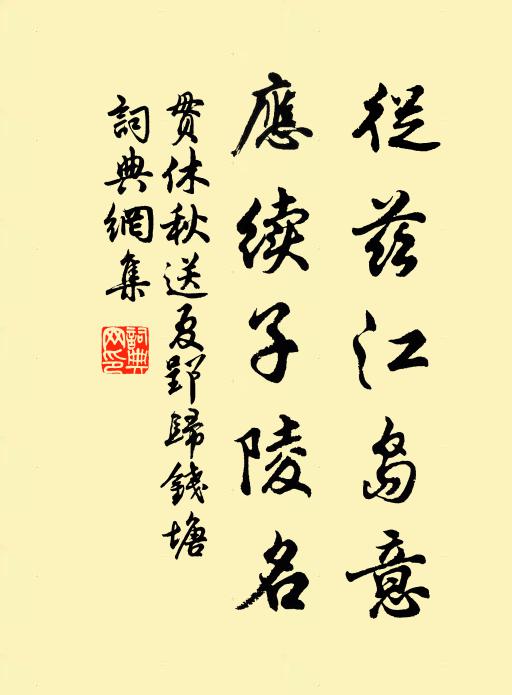 從茲江島意
應續子陵名
貫休秋送夏郢歸錢塘
詞典網集
詞典網印